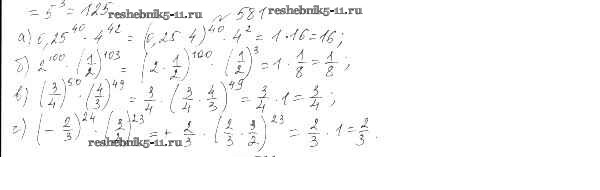 = 5³ = 125 reshebnik5-11.ru
№ 581 reshebnik5-11.ru
а) 0,25⁴⁰ · 4⁴² = (0,25 · 4)⁴⁰ · 4² = 1 · 16 = 16;
б) 2¹⁰⁰ · (1/2)¹⁰³ = (2 · 1/2)¹⁰⁰ · (1/2)³ = 1 · 1/8 = 1/8;
в) (3/4)⁵⁰ · (4/3)⁴⁹ = 3/4 · (3/4 · 4/3)⁴⁹ = 3/4 · 1 = 3/4;
г) (- 2/3)²⁴ · (3/2)²³ = + 2/3 · (2/3 · 3/2)²³ = 2/3 · 1 = 2/3.
reshebnik5-11.ru